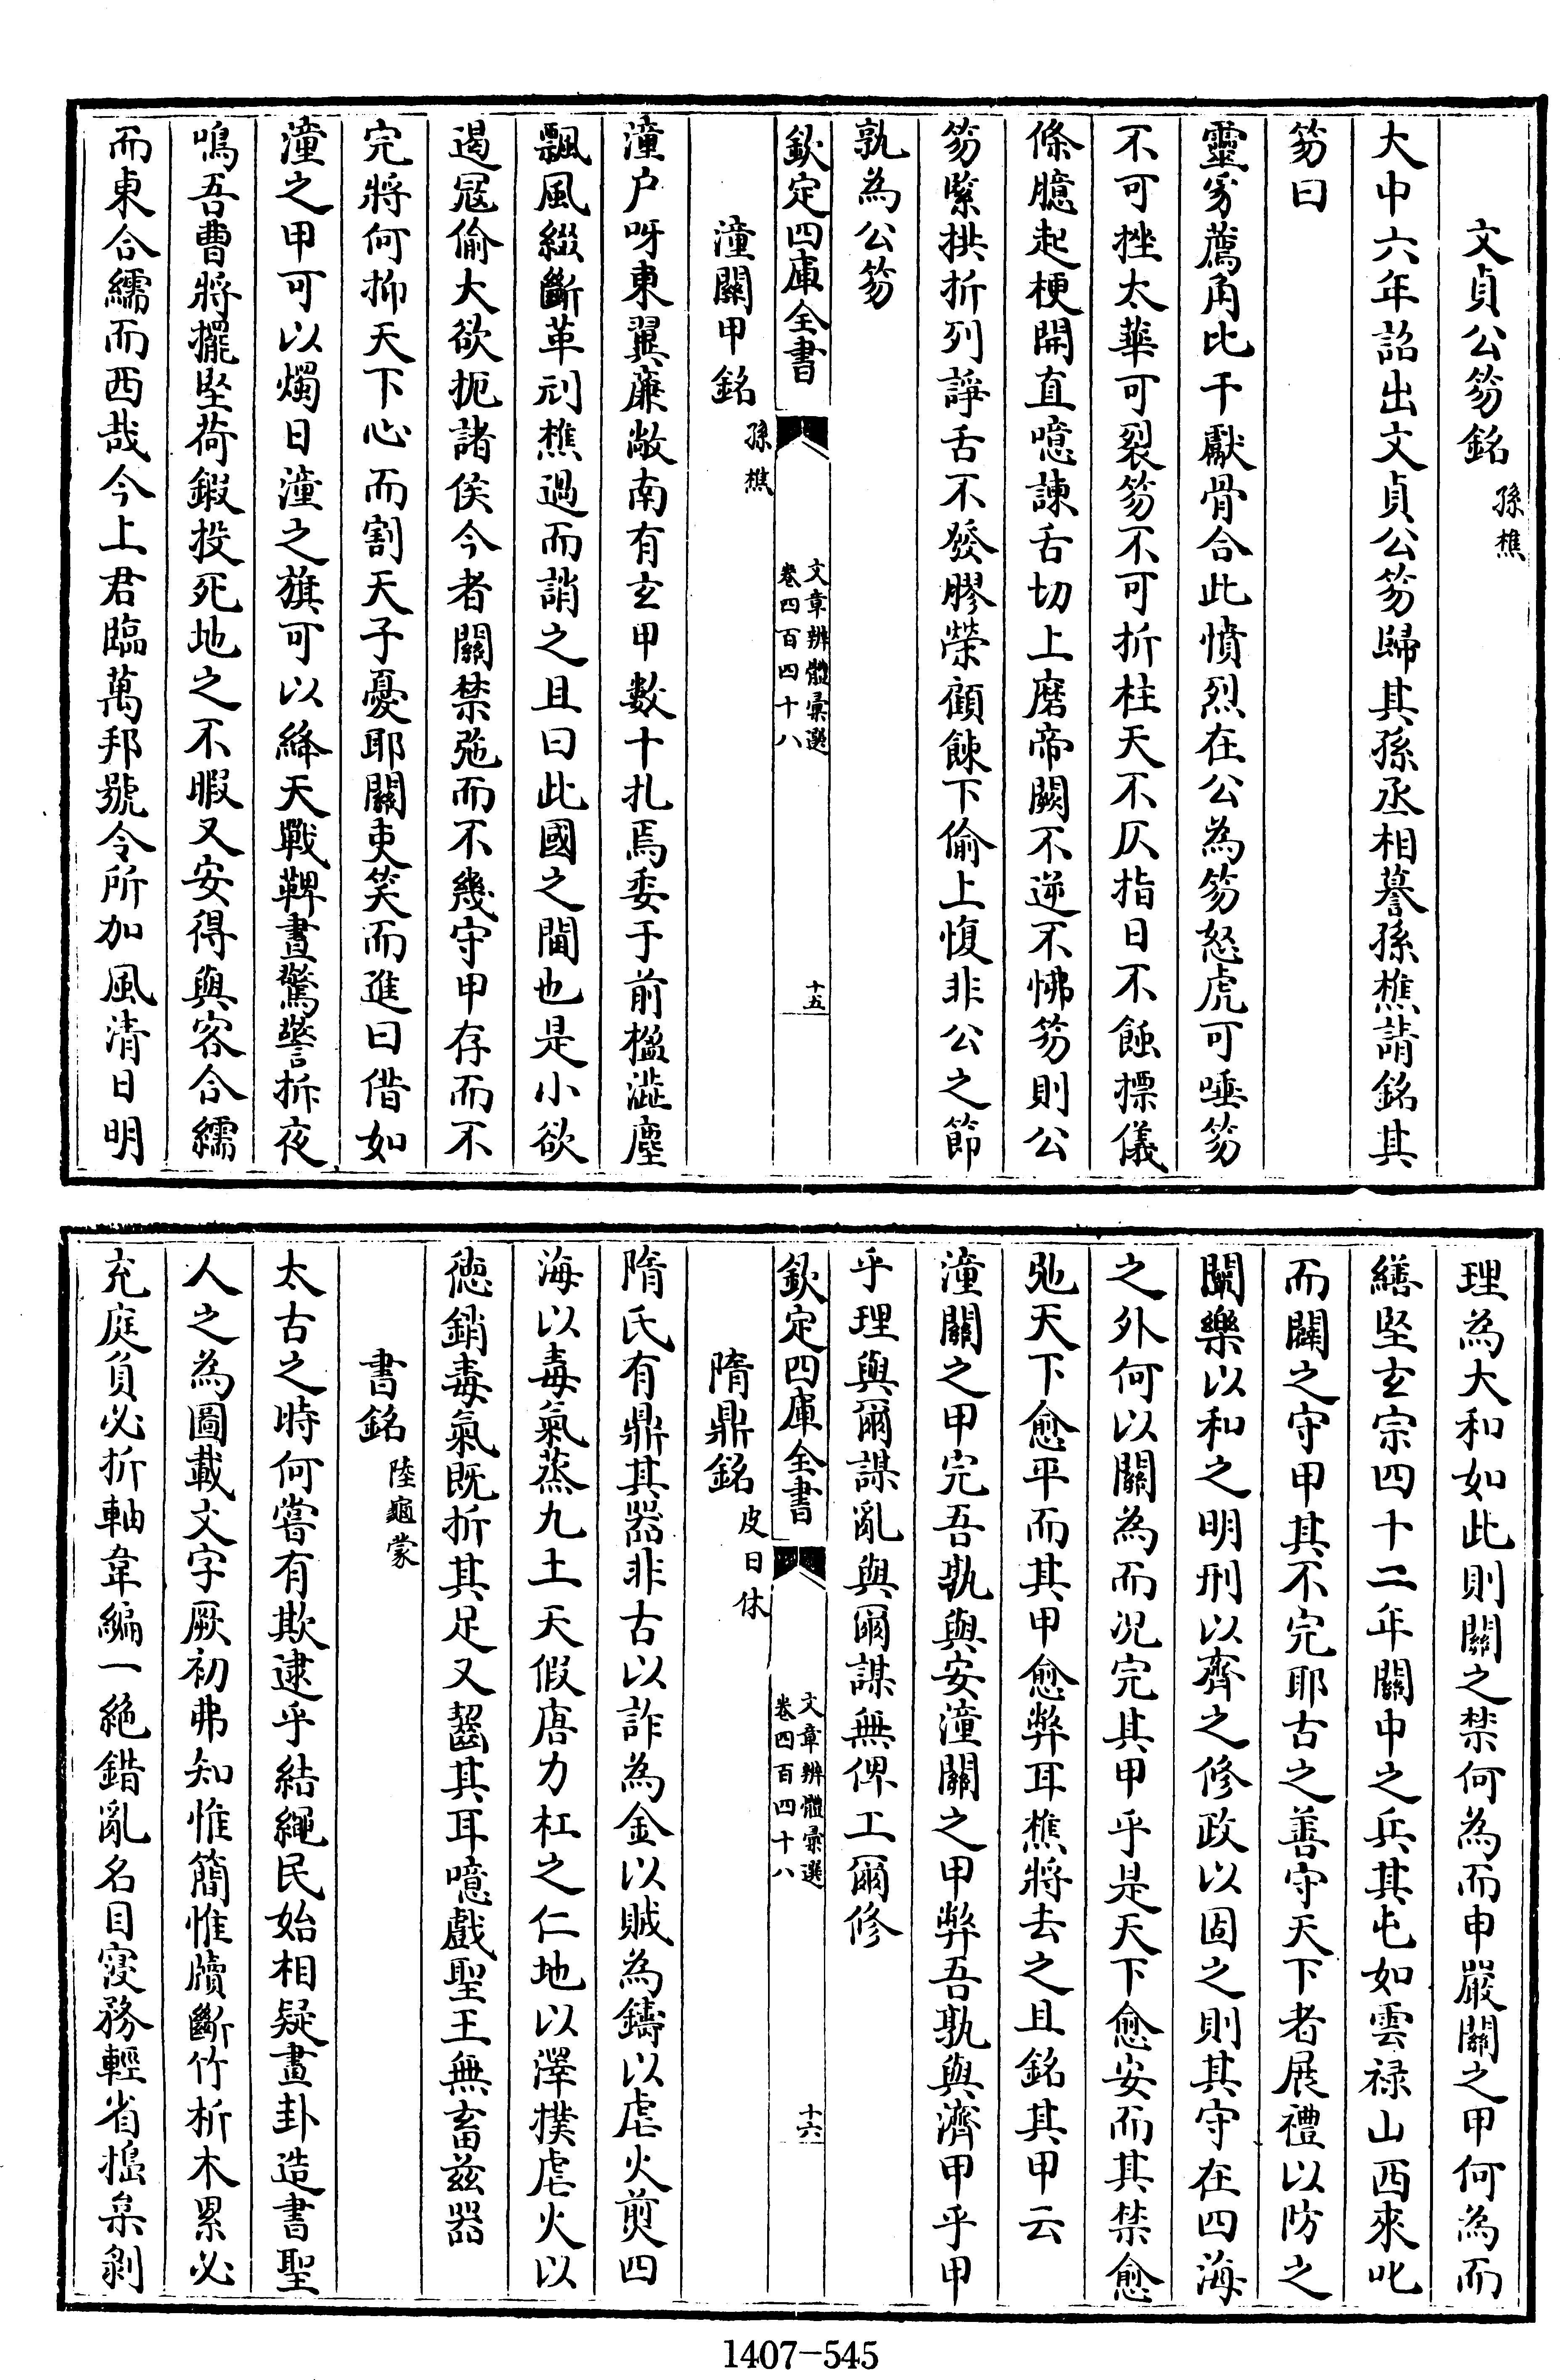 文貞公笏銘 孫樵
大中六年詔出文貞公笏歸其孫丞相謩孫樵請銘其
笏曰
靈豸薦角比干獻骨合此憤烈在公為笏怒虎可唾笏
不可挫太華可裂笏不可折柱天不仄指日不蝕摽儀
條臆起梗開直噫諫舌切上磨帝闕不逆不怫笏則公
笏緊拱折列諍舌不發膠榮顧餗下偷上愎非公之節
孰為公笏
欽定四庫全書 文章辨體彙選 卷四百四十八 十五
潼關甲銘 孫樵
潼户呀東翼廉敞南有玄甲數十扎焉委于前楹澁塵
飄風綴斷革刓樵過而誚之且曰此國之閫也是小欲
遏寇偷大欲扼諸侯今者關禁弛而不幾守甲存而不
完將何抑天下心而割天子憂耶關吏笑而進曰借如
潼之甲可以燭日潼之旗可以絳天戰鞞晝驚警柝夜
鳴吾曹將擐堅荷鍜投死地之不暇又安得與客合繻
而東合繻而西哉今上君臨萬邦號令所加風清日明
理為大和如此則關之禁何為而申嚴關之甲何為而
繕堅玄宗四十二年關中之兵其屯如雲禄山西來叱
而闢之守甲其不完耶古之善守天下者展禮以防之
闡樂以和之明刑以齊之修政以固之則其守在四海
之外何以關為而况完其甲乎是天下愈安而其禁愈
弛天下愈平而其甲愈弊耳樵將去之且銘其甲云
潼關之甲完吾孰與安潼關之甲弊吾孰與濟甲乎甲
乎理與爾謀亂與爾謀無俾工爾修
欽定四庫全書 文章辨體彙選 卷四百四十八 十六
隋鼎銘 皮日休
隋氏有鼎其器非古以詐為金以賊為鑄以虐火煎四
海以毒氣蒸九土天假唐力杠之仁地以澤撲虐火以
徳銷毒氣既折其足又齧其耳噫戲聖王無畜兹器
書銘 陸龜蒙
太古之時何嘗有欺逮乎結繩民始相疑畫卦造書聖
人之為圖載文字厥初弗知惟簡惟牘斷竹析木累必
充庭負必折軸韋編一絶錯亂名目寖務輕省搗枲剝
1407-545